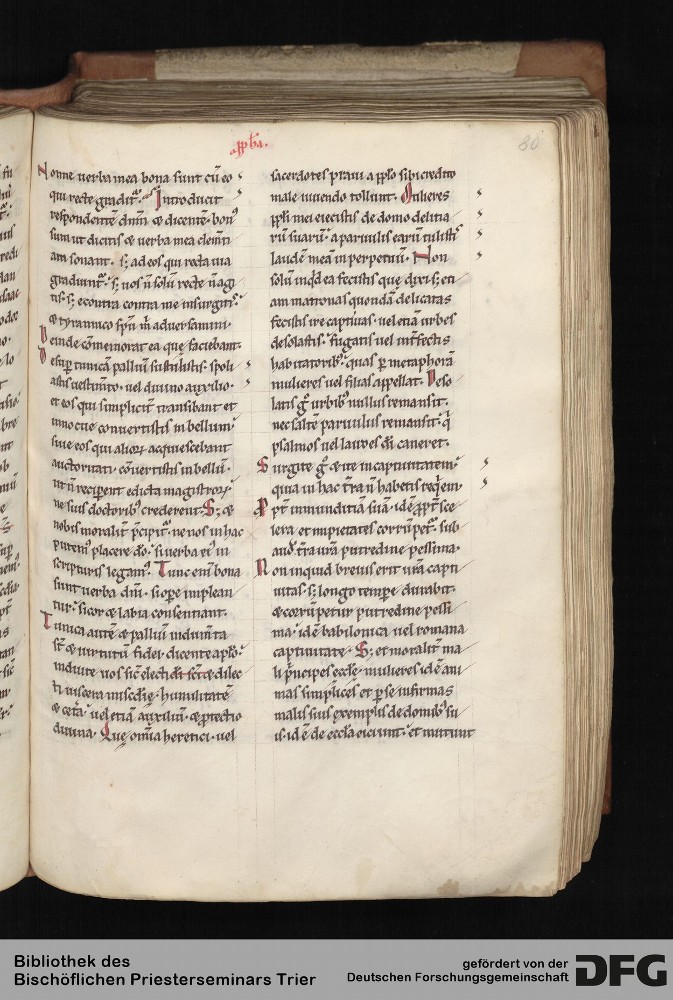 80
Nonne uerba mea bona sunt cū eo
qui recte gradit᷑. Introducit
respondentē dn̄m ⁊ dicentē. bonꝰ
sum ut dicitis ⁊ uerba mea clem̄t
am sonant. sꝫ ad eos qui recta uia
gradiunt᷑. sꝫ uos n̄ solū recte n̄ agi
tis. sꝫ econtra contra me insurgitis.
⁊ tyrannico sp̄u m̄ aduersamini.
Deinde cōmemorat ea que faciebant.
Desup̱ tunicā palliū sustulistis. spoli
astis uestim̄to. uel diuino auxilio.
et eos qui simplicit᷑ transibant et
innocue conuertistis in bellum.
siue eos qui alioꝝ acquiescebant
auctoritati. cōuertistis in bellū.
ut n̄ recip̱ent edicta magistroꝝ.
ne suis doctoribꝰ crederent. Sꝫ ⁊
nobis moralit᷑ p̄cipit᷑. ne nos in hac
putem̄ placere dō. si uerba eiꝰ in
scripturis legamꝰ. Tunc enī bona
sunt uerba dn̄i. si ope implean
tur. si cor ⁊ labia consentiant.
Tunica autē ⁊ palliū indum̄ta
st̄ ⁊ uirtutū fidei. dicente ap̄lo.
induite uos sic̄ electi dī sc̄i ⁊ dilec
ti uiscera mis̄cdie. humilitatē
⁊ cet̄a. uel etiā auxiliū. ⁊ ꝓtectio
diuina. Quę om̄ia heretici. uel
sacerdotes praui a pp̄lo sibi credito
male uiuendo tollunt. Mulieres
pp̄li mei eiecistis de domo delitia
rū suarū. a paruulis earū tulistis
laudē meā in perpetuū. Non
solū inqd̄ ea fecistis quę dixi. sꝫ eti
am matronas quondā delicatas
fecistis ire captiuas. uel etiā urbes
desolastis. fugatis uel int̄fectis
habitatoribꝰ. quas ꝑ metaphorā
mulieres uel filias appellat. Deso
latis g̊ urbibꝰ nullus remansit.
nec saltē paruulus remansit. q̇
psalmos uel laudes dī caneret.
Surgite g̊ ⁊ ite in captiuitatem.
quia in hac t̄ra n̄ habetis req̇em.
Ppt̄ inmunditiā suā. idē ꝓpt̄ sce
lera et impietates corrūpet᷑. sub
aud̄. t̄ra ur̄a putredine pessima.
Non inquid breuis erit ur̄a capti
uitas. sꝫ longo tempe durabit.
⁊ corrūpetur putredine pessi
ma. idē babilonica uel romana
captiuitate. Sꝫ et moralit᷑ ma
li p̄ncipes eccłe. mulieres idē ani
mas simplices et ꝑ se infirmas
malis suis exemplis de domibꝰ su
is. id ē de eccła eiciunt. et mittunt
Bibliothek des
Bischöflichen Priesterseminars Trier
gefördert von der
Deutschen Forschungsgemeinschaft
DFG